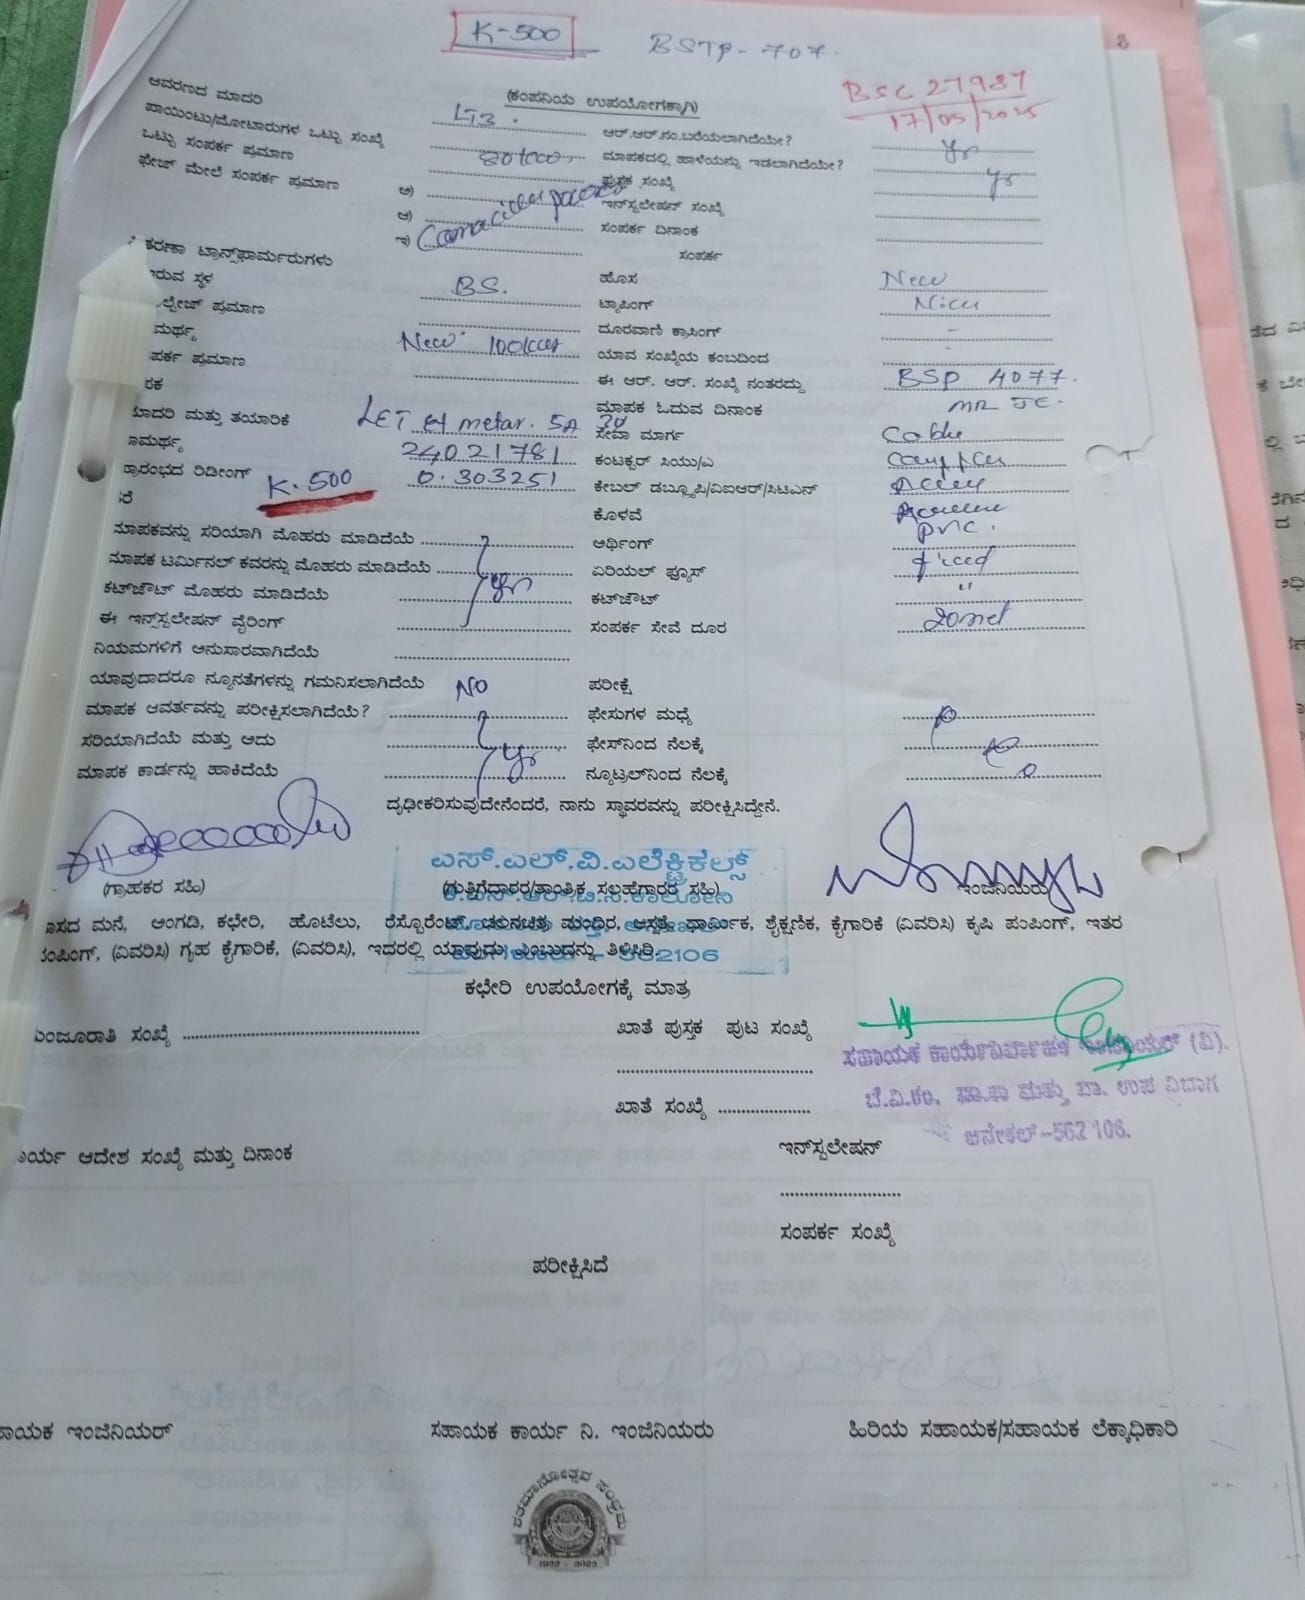 K-500
BSTP-707.
BSC 27987
17/05/2025
(ಕಂಪನಿಯ ಉಪಯೋಗಕ್ಕಾಗಿ)
ಆವರಣದ ಮಾದರಿ LT3. ಆರ್.ಆರ್.ನಂ.ಬರೆಯಲಾಗಿದೆಯೇ?
ಪಾಯಿಂಟು/ಮೋಟಾರುಗಳ ಒಟ್ಟು ಸಂಖ್ಯೆ ಮಾಪಕದಲ್ಲಿ ಹಾಳೆಯನ್ನು ಇಡಲಾಗಿದೆಯೇ?
ಒಟ್ಟು ಸಂಪರ್ಕ ಪ್ರಮಾಣ ಪುಸ್ತಕ ಸಂಖ್ಯೆ
ಫೇಜ್ ಮೇಲೆ ಸಂಪರ್ಕ ಪ್ರಮಾಣ ಅ) ಇನ್‌ಸ್ಟಲೇಷನ್ ಸಂಖ್ಯೆ
ಆ) ಸಂಪರ್ಕ ದಿನಾಂಕ
ಇ) ಸಂಪರ್ಕ
ಕರಣಾ ಟ್ರಾನ್ಸ್‌ಫಾರ್ಮರುಗಳು ಹೊಸ New
ಇರುವ ಸ್ಥಳ BS. ಟ್ಯಾಪಿಂಗ್
ಲ್ಟೇಜ್ ಪ್ರಮಾಣ ದೂರವಾಣಿ ಕ್ರಾಸಿಂಗ್ -
ಮರ್ಥ್ಯ New 100 ಯಾವ ಸಂಖ್ಯೆಯ ಕಂಬದಿಂದ -
ಪರ್ಕ ಪ್ರಮಾಣ ಈ ಆರ್. ಆರ್. ಸಂಖ್ಯೆ ನಂತರದ್ದು BSP 4077.
ರಕ ಮಾಪಕ ಓದುವ ದಿನಾಂಕ MR JE.
ಮಾದರಿ ಮತ್ತು ತಯಾರಿಕೆ LET metar. 5A ಸೇವಾ ಮಾರ್ಗ Cable
ಾಮರ್ಥ್ಯ 24021781 ಕಂಟಕ್ಟರ್ ಸಿಯು/ಎ
್ರಾರಂಭದ ರಿಡೀಂಗ್ K.500 0.303251 ಕೇಬಲ್ ಡಬ್ಲ್ಯೂಪಿ/ವಿಐಆರ್/ಸಿಟಿಎಸ್
ರೆ ಕೊಳವೆ
ಮಾಪಕವನ್ನು ಸರಿಯಾಗಿ ಮೊಹರು ಮಾಡಿದೆಯೆ ಆರ್ಥಿಂಗ್ PVC.
ಮಾಪಕ ಟರ್ಮಿನಲ್ ಕವರನ್ನು ಮೊಹರು ಮಾಡಿದೆಯೆ ಏರಿಯಲ್ ಫ್ಯೂಸ್ fixed
ಕಟ್‌ಔಟ್ ಮೊಹರು ಮಾಡಿದೆಯೆ ಕಟ್‌ಔಟ್ "
ಈ ಇನ್‌ಸ್ಟಲೇಷನ್ ವೈರಿಂಗ್ ಸಂಪರ್ಕ ಸೇವೆ ದೂರ 20met
ನಿಯಮಗಳಿಗೆ ಅನುಸಾರವಾಗಿದೆಯೆ
ಯಾವುದಾದರೂ ನ್ಯೂನತೆಗಳನ್ನು ಗಮನಿಸಲಾಗಿದೆಯೆ NO ಪರೀಕ್ಷೆ
ಮಾಪಕ ಆವರ್ತವನ್ನು ಪರೀಕ್ಷಿಸಲಾಗಿದೆಯೆ? ಫೇಸುಗಳ ಮಧ್ಯೆ
ಸರಿಯಾಗಿದೆಯೆ ಮತ್ತು ಅದು ಫೇಸ್‌ನಿಂದ ನೆಲಕ್ಕೆ
ಮಾಪಕ ಕಾರ್ಡನ್ನು ಹಾಕಿದೆಯೆ ನ್ಯೂಟ್ರಲ್‌ನಿಂದ ನೆಲಕ್ಕೆ
ದೃಢೀಕರಿಸುವುದೇನೆಂದರೆ, ನಾನು ಸ್ಥಾವರವನ್ನು ಪರೀಕ್ಷಿಸಿದ್ದೇನೆ.
ಎಸ್.ಎಲ್.ವಿ.ಎಲೆಕ್ಟ್ರಿಕಲ್ಸ್
(ಗ್ರಾಹಕರ ಸಹಿ) (ಗುತ್ತಿಗೆದಾರರ/ತಾಂತ್ರಿಕ ಸಲಹೆಗಾರರ ಸಹಿ) ಇಂಜಿನಿಯರು
ಾಸದ ಮನೆ, ಅಂಗಡಿ, ಕಛೇರಿ, ಹೊಟೆಲು, ರೆಸ್ಟೊರೆಂಟ್, ಚಲನಚಿತ್ರ ಮಂದಿರ, ಆಸ್ಪತ್ರೆ, ಧಾರ್ಮಿಕ, ಶೈಕ್ಷಣಿಕ, ಕೈಗಾರಿಕೆ (ವಿವರಿಸಿ) ಕೃಷಿ ಪಂಪಿಂಗ್, ಇತರ
ಂಪಿಂಗ್, (ವಿವರಿಸಿ) ಗೃಹ ಕೈಗಾರಿಕೆ, (ವಿವರಿಸಿ), ಇದರಲ್ಲಿ ಯಾವುದು ಎಂಬುದನ್ನು ತಿಳಿಸಿರಿ.
ಕಛೇರಿ ಉಪಯೋಗಕ್ಕೆ ಮಾತ್ರ
ಮಂಜೂರಾತಿ ಸಂಖ್ಯೆ ಖಾತೆ ಪುಸ್ತಕ ಪುಟ ಸಂಖ್ಯೆ
ಸಹಾಯಕ ಕಾರ್ಯನಿರ್ವಾಹಕ ಇಂಜಿನಿಯರ್ (ವಿ).
ಬೆ.ವಿ.ಕಂ, ಕಾ.ಮತ್ತು ಪಾ. ಉಪ ವಿಭಾಗ
ಖಾತೆ ಸಂಖ್ಯೆ
ಆನೇಕಲ್-562 106.
ಾರ್ಯ ಆದೇಶ ಸಂಖ್ಯೆ ಮತ್ತು ದಿನಾಂಕ ಇನ್‌ಸ್ಟಲೇಷನ್
ಸಂಪರ್ಕ ಸಂಖ್ಯೆ
ಪರೀಕ್ಷಿಸಿದೆ
ಾಯಕ ಇಂಜಿನಿಯರ್ ಸಹಾಯಕ ಕಾರ್ಯ ನಿ. ಇಂಜಿನಿಯರು ಹಿರಿಯ ಸಹಾಯಕ/ಸಹಾಯಕ ಲೆಕ್ಕಾಧಿಕಾರಿ
ಶತಮಾನೋತ್ಸವ ಸಂಭ್ರಮ